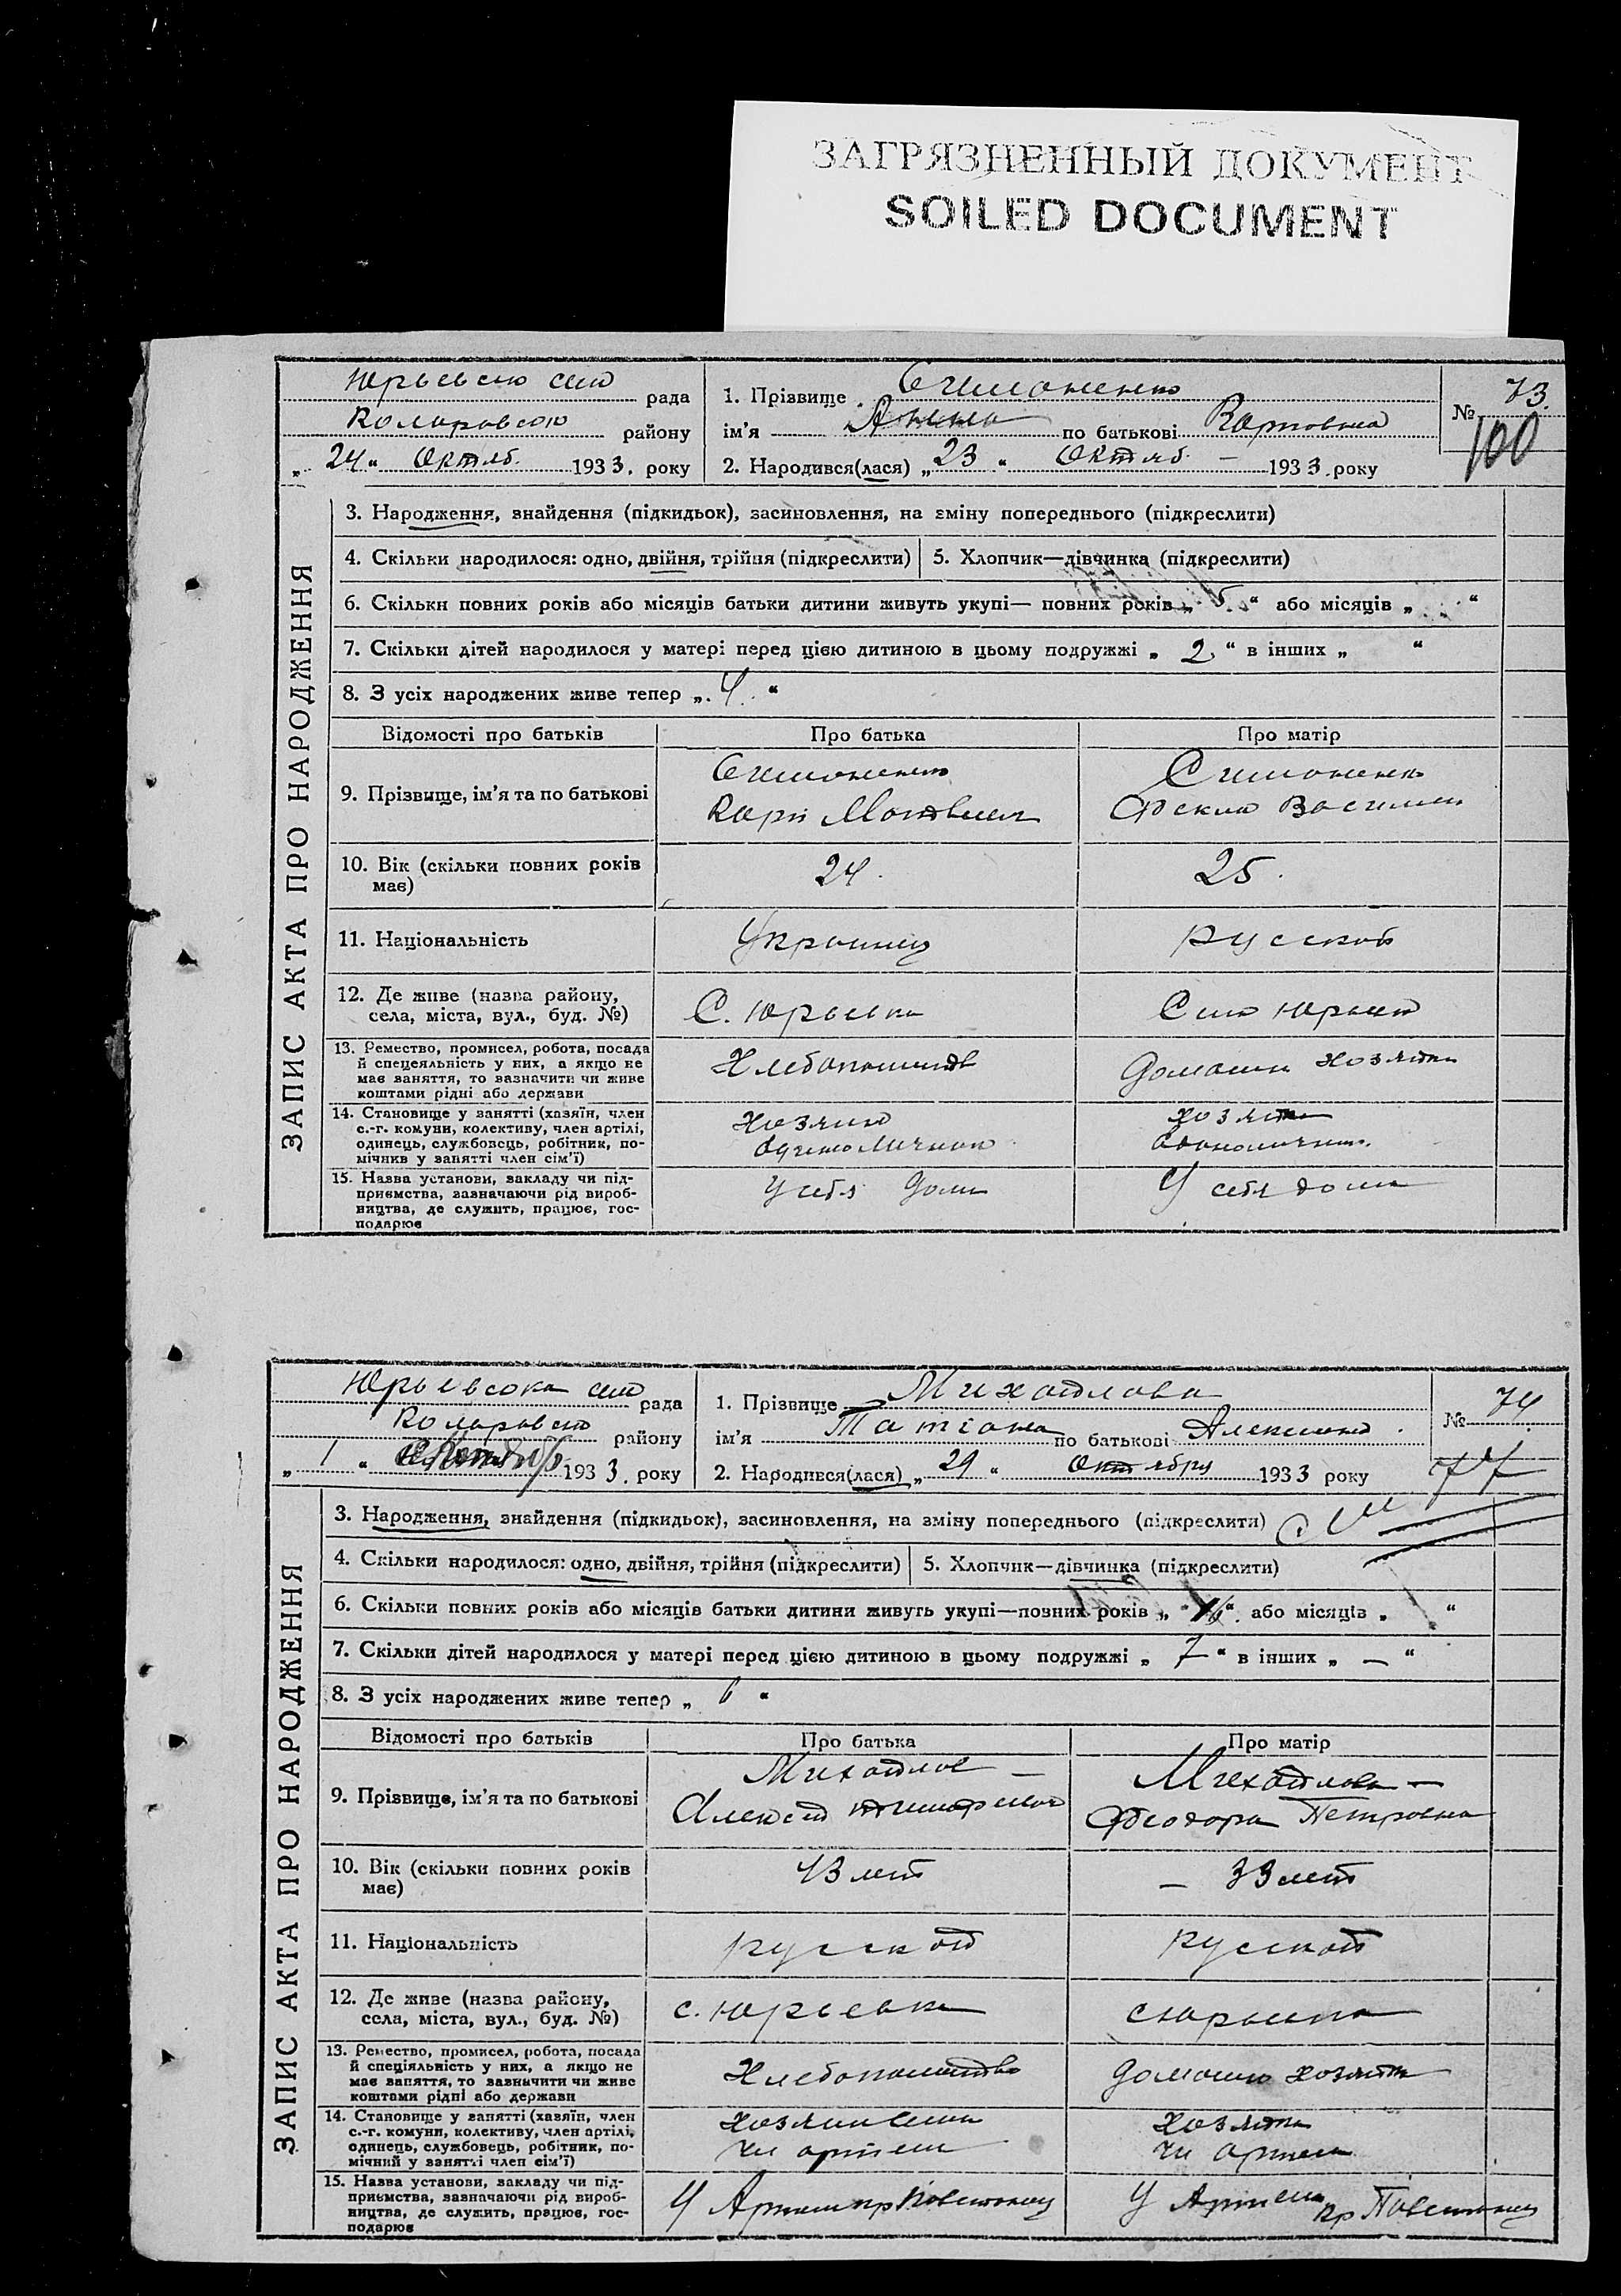 ЗАГРЯЗНЕННЫЙ ДОКУМЕНТ
SOILED DOCUMENT
рада
району
„ 24 “ Октяб. 1933. року
1. Прізвище Симоненко
ім'я Анна по батькові Карповна
2. Народився(лася) „ 23 “ Октяб. – 1933. року
№ 73.
100
ЗАПИС АКТА ПРО НАРОДЖЕННЯ
3. Народження, знайдення (підкидьок), засиновлення, на зміну попереднього (підкреслити)
4. Скільки народилося: одно, двійня, трійня (підкреслити)
5. Хлопчик—дівчинка (підкреслити)
6. Скільки повних років або місяців батьки дитини живуть укупі— повних років „ 5 “ або місяців „ “
7. Скільки дітей народилося у матері перед цією дитиною в цьому подружжі „ 2. “ в інших „ “
8. З усіх народжених живе тепер „ 4. “
Відомості про батьків
Про батька
Про матір
9. Прізвище, ім'я та по батькові
Симоненко
Карп
Симоненко
10. Вік (скільки повних років
має)
24.
25.
11. Національність
Украинец
русской
12. Де живе (назва району,
села, міста, вул., буд. №)
С. Юрьевка
Село
13. Ремество, промисел, робота, посада
й спецеяльність у них, а якщо не
має заняття, то вазначити чи живе
коштами рідні або держави
14. Становище у занятті (хазяїн, член
с.-г. комуни, колективу, член артілі,
одинець, службовець, робітник, по-
мічник у занятті член сім'ї)
Хозяин
15. Назва установи, закладу чи під-
приємства, вазначаючи рід вироб-
ництва, де служить, працює, гос-
подарює
У себя дома
У себя дома
рада
району
„ 1 “ 1933. року
1. Прізвище Михайлова
ім'я Татіана по батькові
2. Народився(лася) „ 29 “ Октября 1933 року
№ 74
77
ЗАПИС АКТА ПРО НАРОДЖЕННЯ
3. Народження, знайдення (підкидьок), засиновлення, на зміну попереднього (підкреслити)
4. Скільки народилося: одно, двійня, трійня (підкреслити)
5. Хлопчик—дівчинка (підкреслити)
6. Скільки повних років або місяців батьки дитини живуть укупі—повних років „ “ або місяців „ “
7. Скільки дітей народилося у матері перед цією дитиною в цьому подружжі „ 7 “ в інших „ — “
8. З усіх народжених живе тепер „ 6 “
Відомості про батьків
Про батька
Про матір
9. Прізвище, ім'я та по батькові
Михайлов —
Алексей
Михайлова —
Феодора Петровна
10. Вік (скільки повних років
має)
43 лет
— 33 лет
11. Національність
русской
русской
12. Де живе (назва району,
села, міста, вул., буд. №)
с. Юрьевка
13. Ремество, промисел, робота, посада
й спеціяльність у них, а якщо не
має заняття, то вазначити чи живе
коштами рідні або держави
14. Становище у занятті (хазяїн, член
с.-г. комуни, колективу, член артілі,
одинець, службовець, робітник, по-
мічний у занятті член сім'ї)
15. Назва установи, закладу чи під-
приємства, вазначаючи рід вироб-
ництва, де служить, працює, гос-
подарює